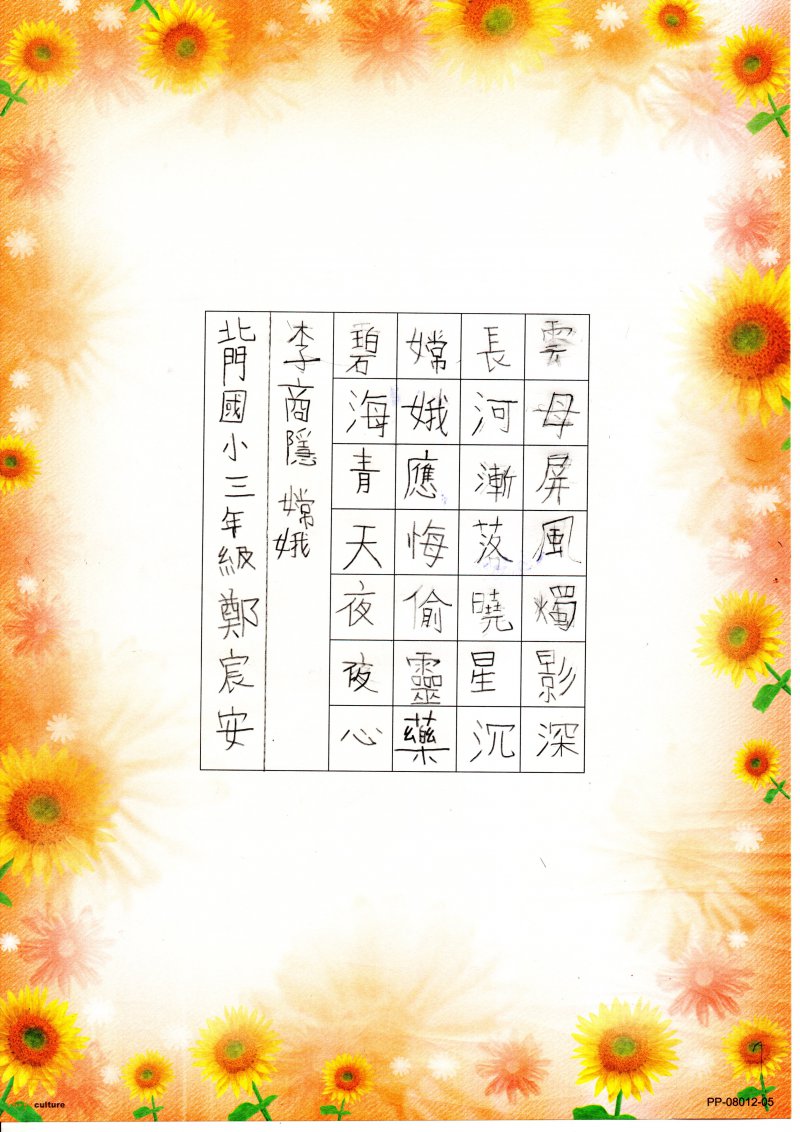 雲母屏風燭影深
長河漸落曉星沉
嫦娥應悔偷靈藥
碧海青天夜夜心
李商隱 嫦娥
北門國小三年級鄭宸安
culture
PP-08012-05